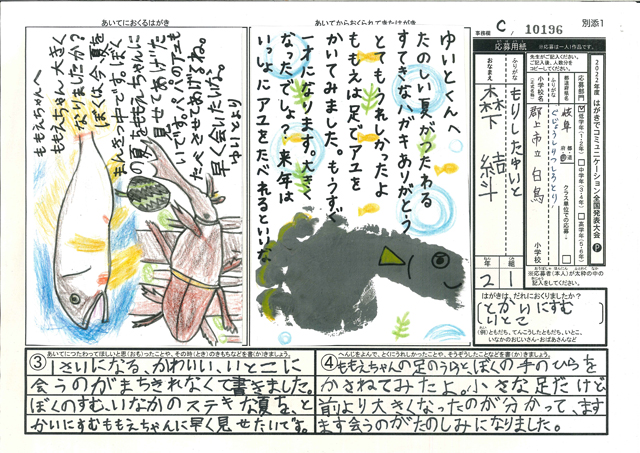 あいてにおくるはがき
ももえちゃんへ
ももえちゃん、大きく
なりましたか?
ぼくは今、夏を
まんきつ中です。ぼく
の夏をももえちゃんに
見せてあげた
いです。パパのアユも
たべさせあげるね。
早く会いたいな。
ゆいとより
あいてからおくられてきたはがき
ゆいとくんへ
たのしい夏がつたわる
すてきなハガキありがとう
とてもうれしかったよ
ももえは足でアユを
かいてみました。もうすぐ
一才になります。大きく
なったでしょ?来年は
いっしょにアユをたべれるといいな
事務欄 C, 10196
別添1
2022年度 はがきでコミュニケーション全国発表大会 P
応募用紙 ※応募は一人1作品です。
応募部門
低学年(1・2年)
中学年(3・4年)
高学年(5・6年)
都道府県名
岐阜
クラス単位での応募
ふりがな
ぐじょうしりつしろとり
小学校名
郡上市立 白鳥
小学校
ふりがな
もりした ゆいと
おなまえ
森下 結斗
年 2
組 1
※応募者(本人)が太枠の中の
記入をしてください。
はがきは、だれにおくりましたか?
とかいにすむ
いとこ
(例)ともだち、てんこうしたともだち、いとこ、
いなかのおじいさん・おばあさんなど
あいてにつたわってほしいと思(おも)ったことや、その時(とき)のきもちなどを書(か)きましょう。
③ 1さいになる、かわいい、いとこに
会うのがまちきれなくて書きました。
ぼくのすむ、いなかのステキな夏を、と
かいにすむももえちゃんに早く見せたいです。
へんじをよんで、とくにうれしかったことや、そうぞうしたことなどを書(か)きましょう。
④ ももえちゃんの足のうらと、ぼくの手のひらを
かさねてみたよ。小さな足だけど
前より大きくなったのが分かって、ます
ます会うのがたのしみになりました。